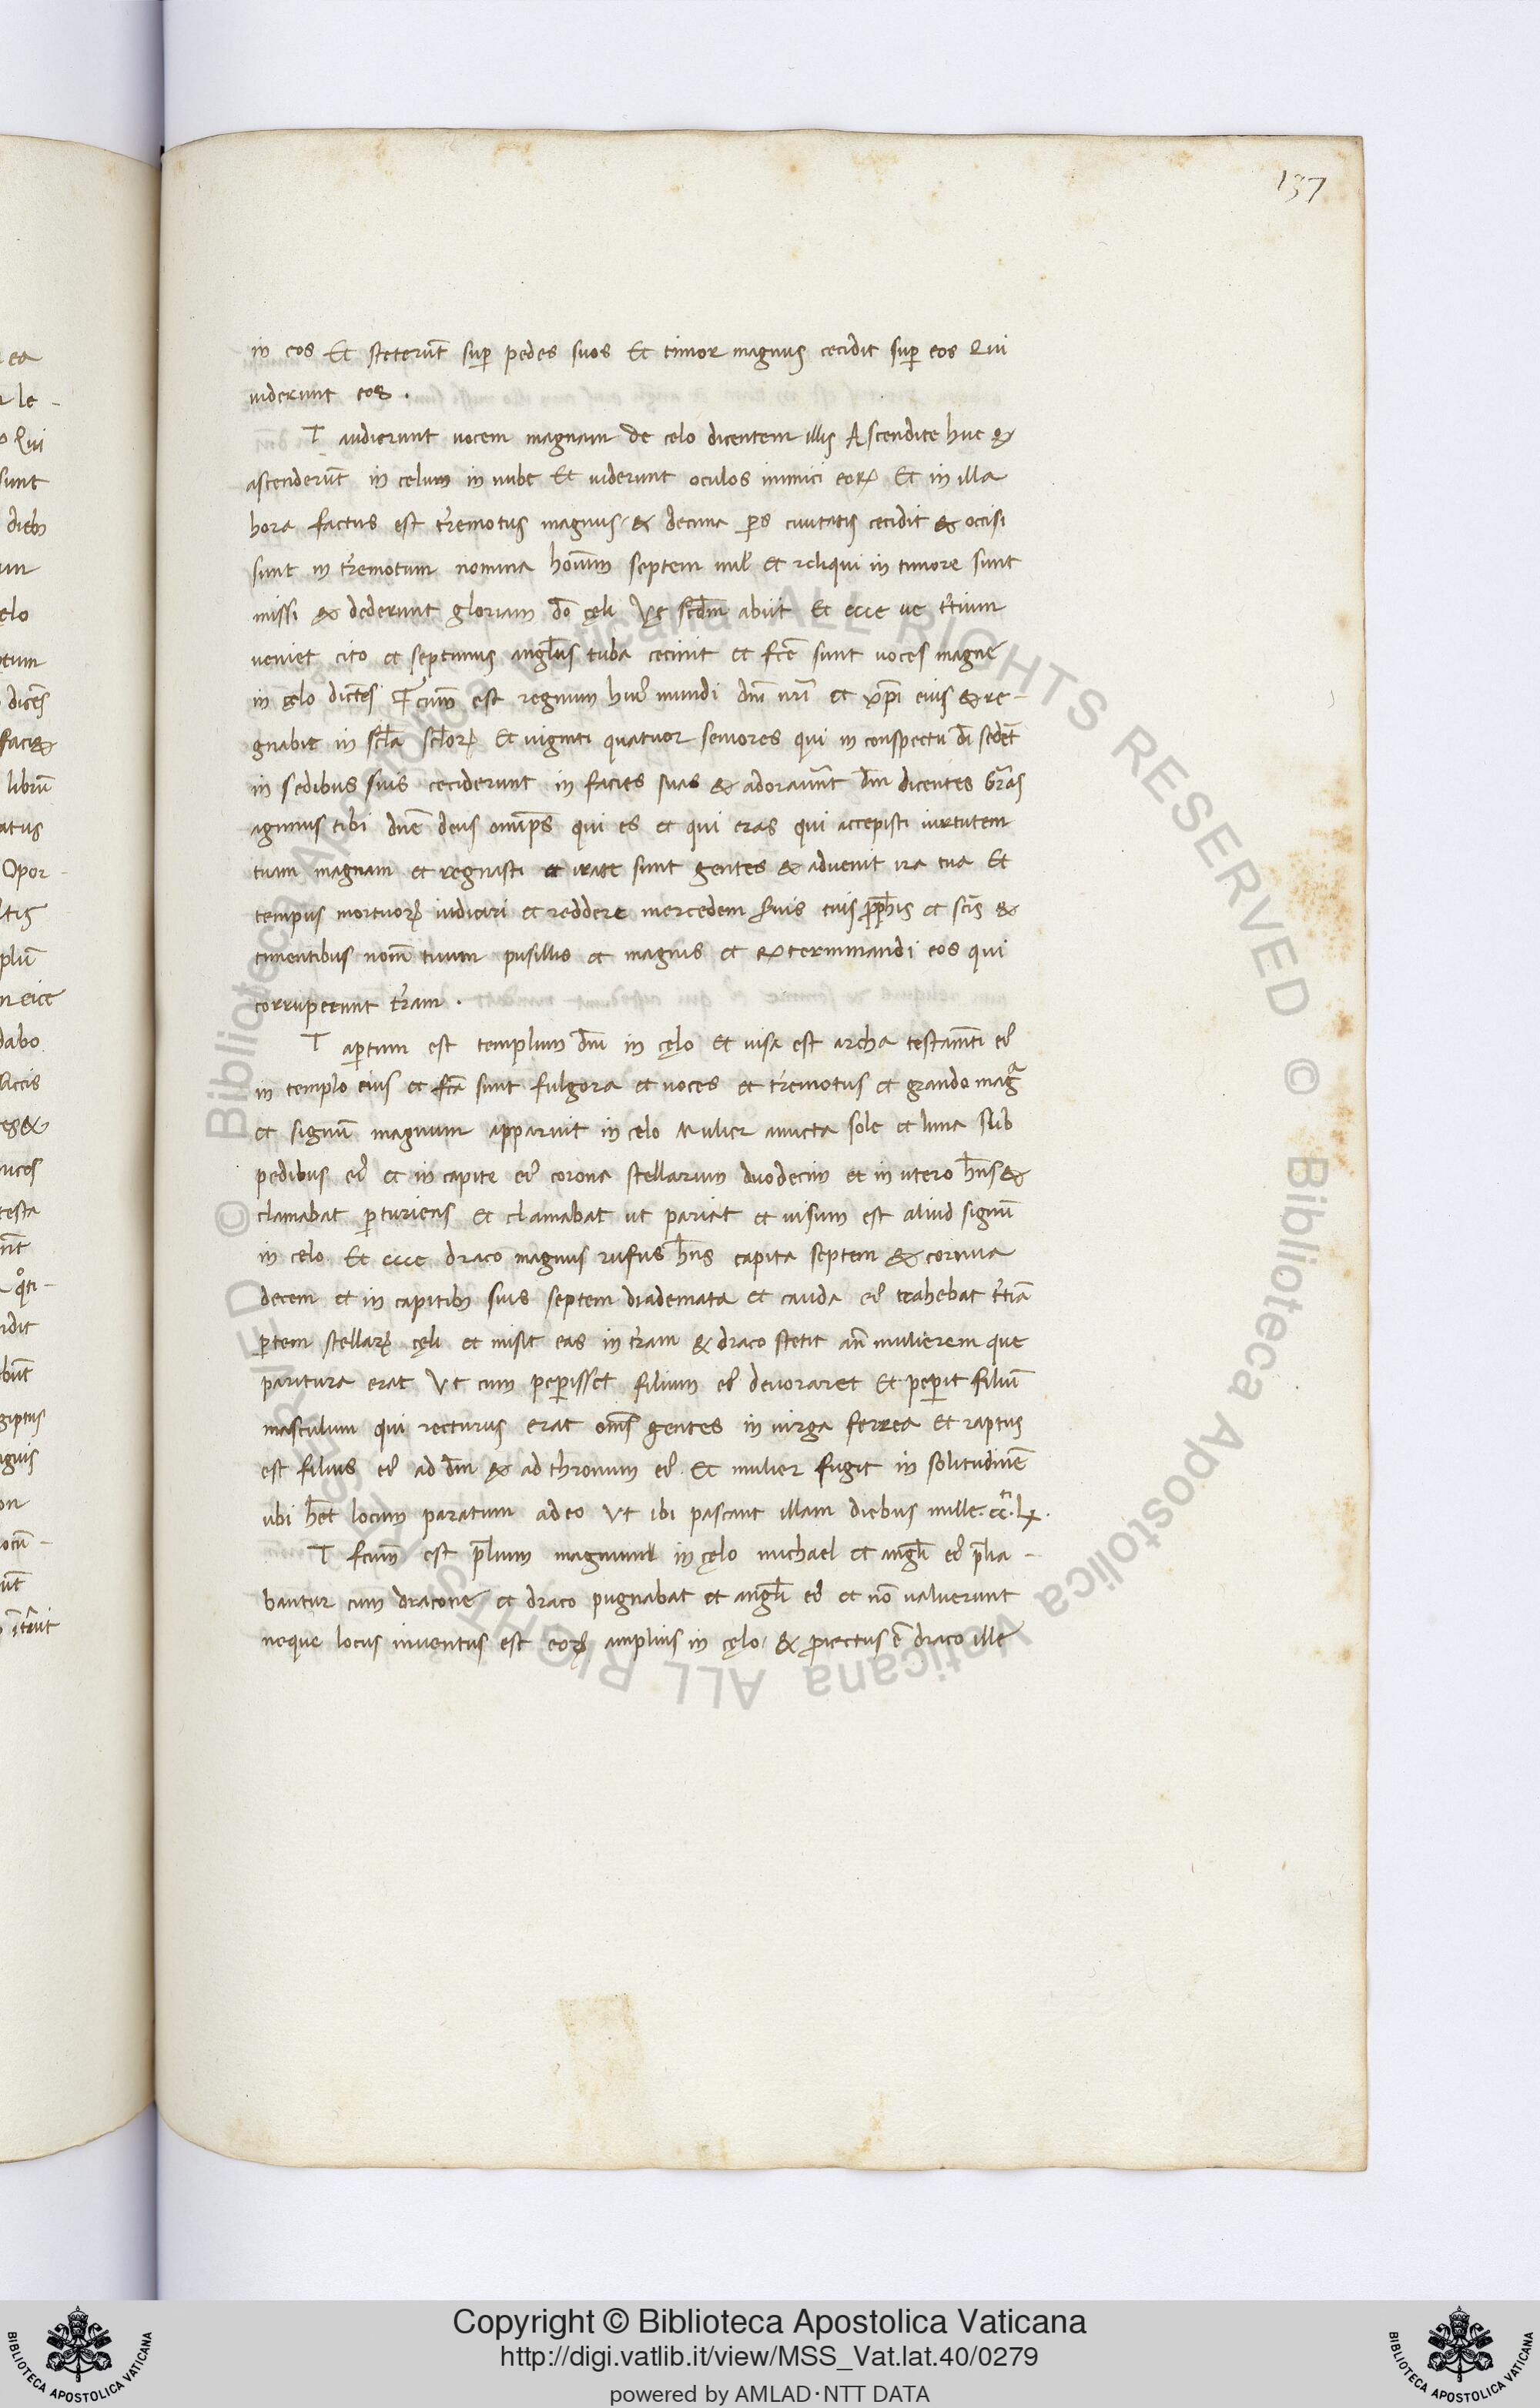 137
in eos Et steterūt sup̱ pedes suos Et timor magnus cecidit sup̱ eos Qui
uiderunt eos .
T audierunt uocem magnam de celo dicentem illis Ascendite huc &
ascenderūt in celum in nube Et uiderunt oculos inimici eoꝝ Et in illa
hora factus est t̄remotus magnus & decima ꝑs ciuitatis cecidit & occisi
sunt in t̄remotum nomina hoīum septem mil̄ et reliqui in timore sunt
missi & dederunt gloriam dō cęli Vę scd̄m abiit Et ecce ue t̄tium
ueniet cito et septimus angl̄us tuba cecinit et fcē sunt uoces magnę
in cęlo dictēs Fcūm est regnum huiꝰ mundi dnī nrī et xp̄i eius & re-
gnabit in scl̄a scl̄oꝝ Et uiginti quatuor seniores qui in conspectu dī sedēt
in sedibus suis ceciderunt in facies suas & adorauūnt dm̄ dicentes Grās
agimus tibi dnē deus omīps qui es et qui eras qui accepisti uirtutem
tuam magnam et regnasti et irate sunt gentes & aduenit ira tua Et
tempus mortuoꝝ iudicari et reddere mercedem s̄uis tuis ꝓph̄is et scīs &
timentibus nom̄ tuum pusillis et magnis et exterminandi eos qui
corruperunt t̄ram .
T aꝑtum est templum dnī in cęlo et uisa est archa testam̄ti eiꝰ
in templo eius et fcā sunt fulgora et uoces et t̄remotus et grando magᵃ
et signū magnum apparuit in celo Mulier amicta sole et luna sub
pedibus eiꝰ et in capite eiꝰ corona stellarum duodecim et in utero hn̄s &
clamabat ꝑturiens Et clamabat ut pariat et uisum est aliud signū
in cęlo Et ecce draco magnus rufus hn̄s capita septem & cornua
decem et in capitibꝰ suis septem diademata et cauda eiꝰ trahebat t̄tiā
ꝑtem stellaꝝ cęli et misit eas in t̄ram & draco stetit an̄ mulierem que
paritura erat Vt cum peꝑisset filium eiꝰ deuoraret Et peꝑit filiū
masculum qui recturus erat om̄s gentes in uirga ferrea Et raptus
est filius eiꝰ ad dm̄ & ad thronum eiꝰ. Et mulier fugit in solitudinē
ubi h̄et locum paratum a deo Vt ibi pascant illam diebus mille. cc. lx.
T fcūm est p̄lium magnum in cęlo michael et angl̄i eiꝰ p̄lia-
bantur cum dracone et draco pugnabat et angl̄i eiꝰ et nō ualuerunt
neque locus inuentus est eoꝝ amplius in cęlo & ꝓiectus ē draco ille
Copyright © Biblioteca Apostolica Vaticana
http://digi.vatlib.it/view/MSS_Vat.lat.40/0279
powered by AMLAD·NTT DATA